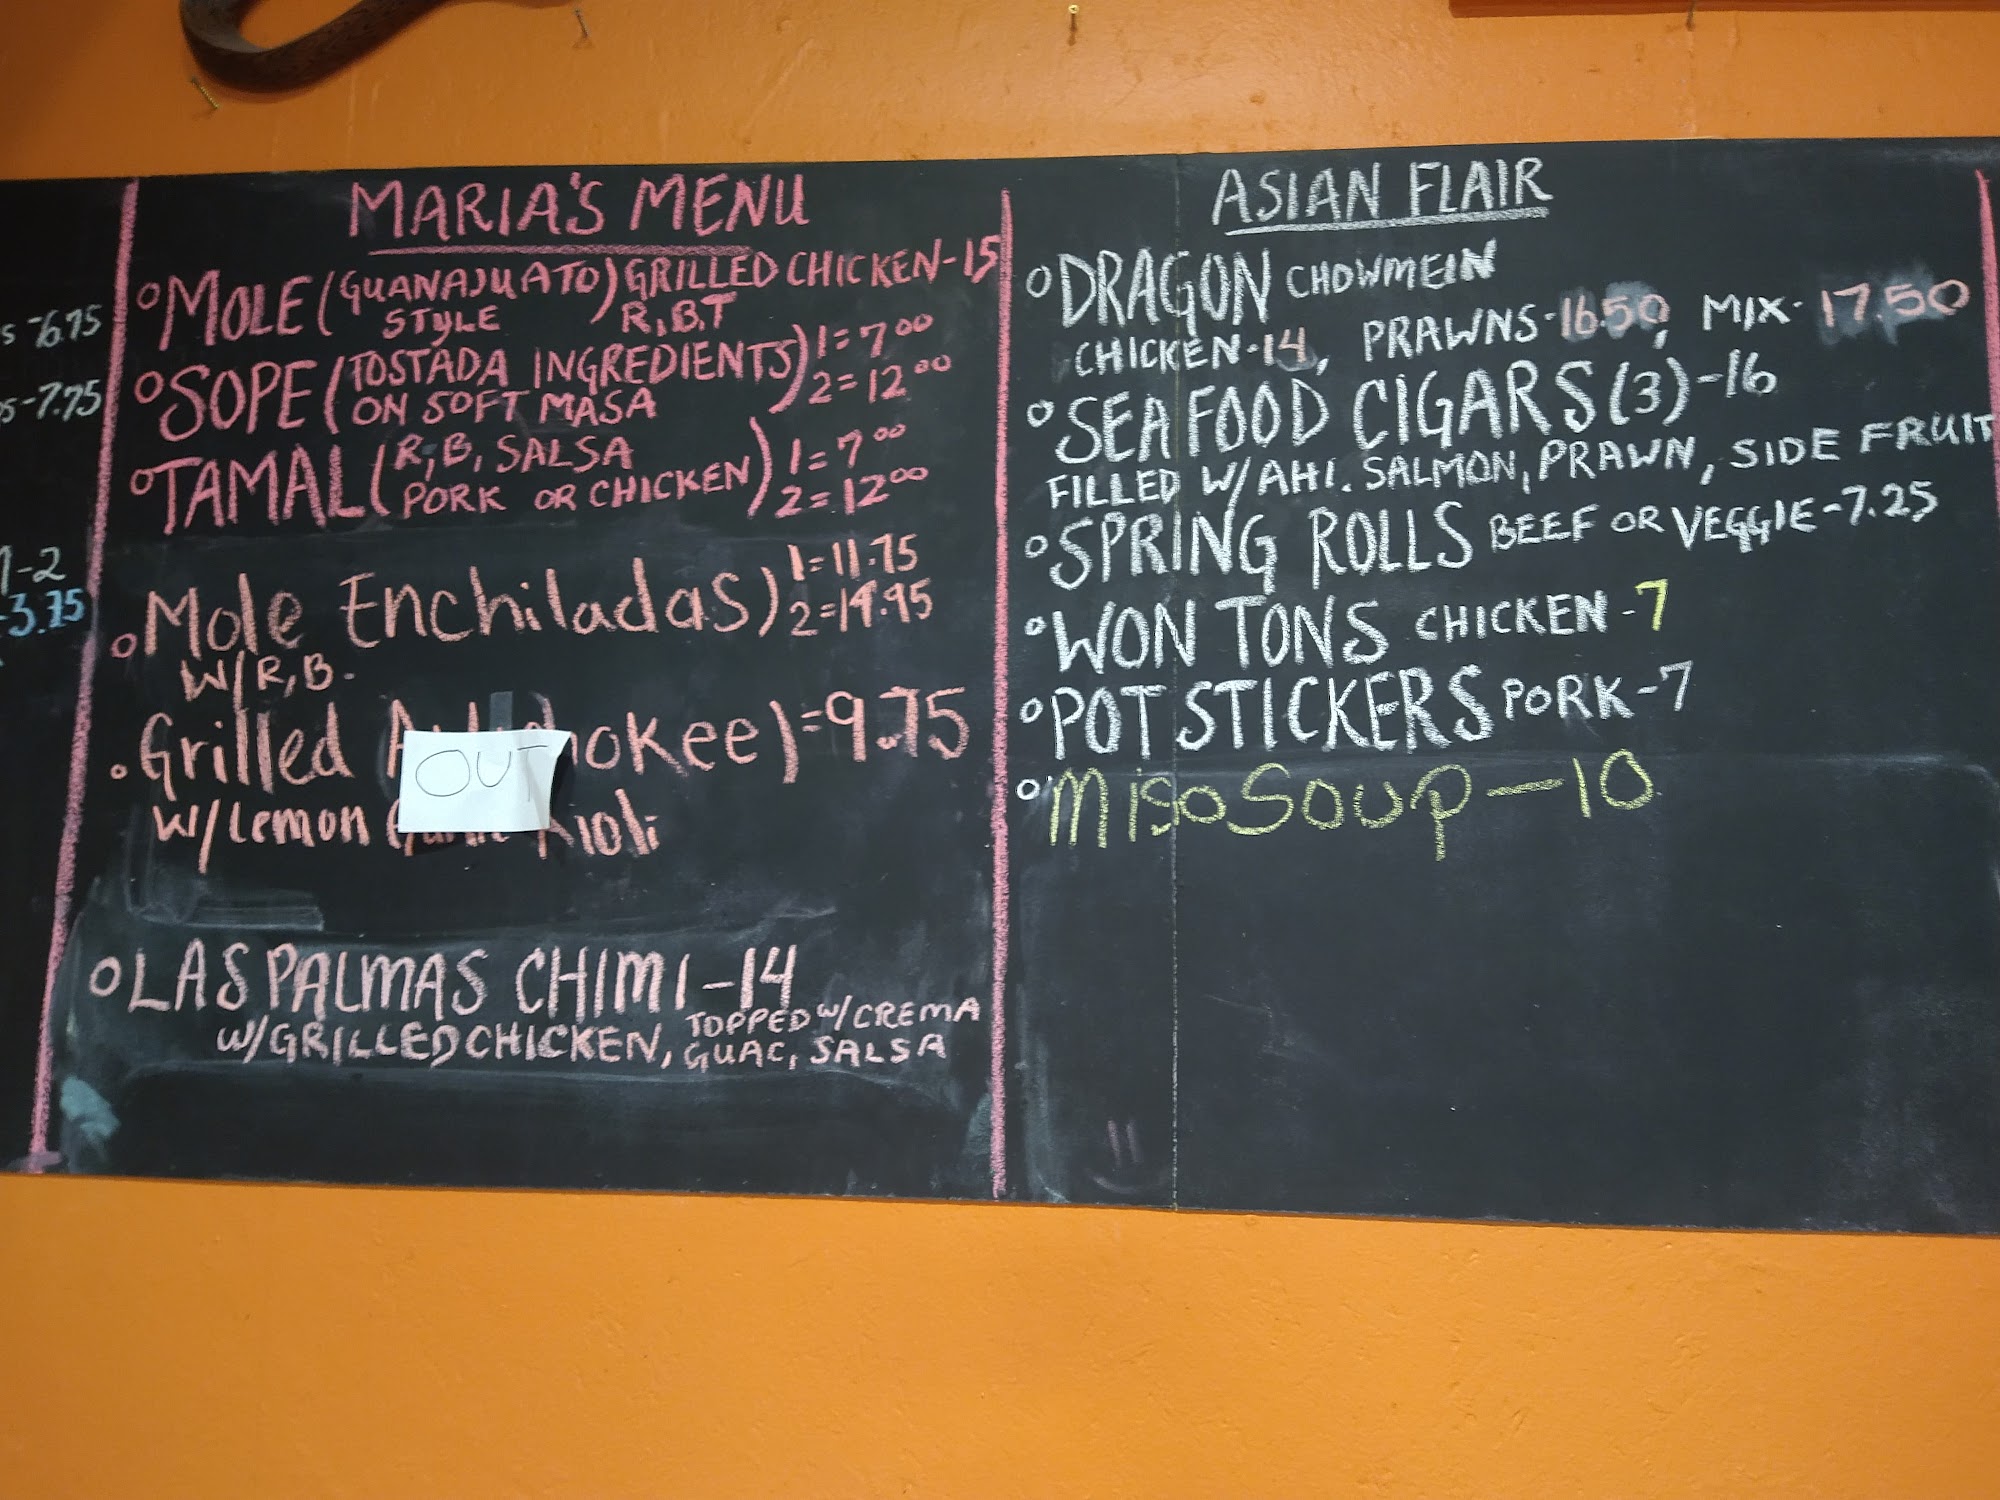 S-6.75
-7.75
-2
-3.75
MARIA'S MENU
MOLE (GUANAJUATO STYLE) GRILLED CHICKEN-15
R,B.T
SOPE (TOSTADA INGREDIENTS ON SOFT MASA) 1=7⁰⁰
2=12⁰⁰
TAMAL (R,B, SALSA PORK OR CHICKEN) 1=7⁰⁰
2=12⁰⁰
Mole Enchiladas) 1=11.75
2=19.95
W/R,B.
Grilled )=9.75
OUT
W/Lemon
LAS PALMAS CHIMI-14
W/GRILLED CHICKEN, TOPPED W/CREMA
GUAC, SALSA
ASIAN FLAIR
DRAGON CHOWMEIN
CHICKEN-14, PRAWNS-16.50, MIX-17.50
SEAFOOD CIGARS (3)-16
FILLED W/AHI. SALMON, PRAWN, SIDE FRUIT
SPRING ROLLS BEEF OR VEGGIE-7.25
WON TONS CHICKEN-7
POT STICKERS PORK-7
Miso Soup-10